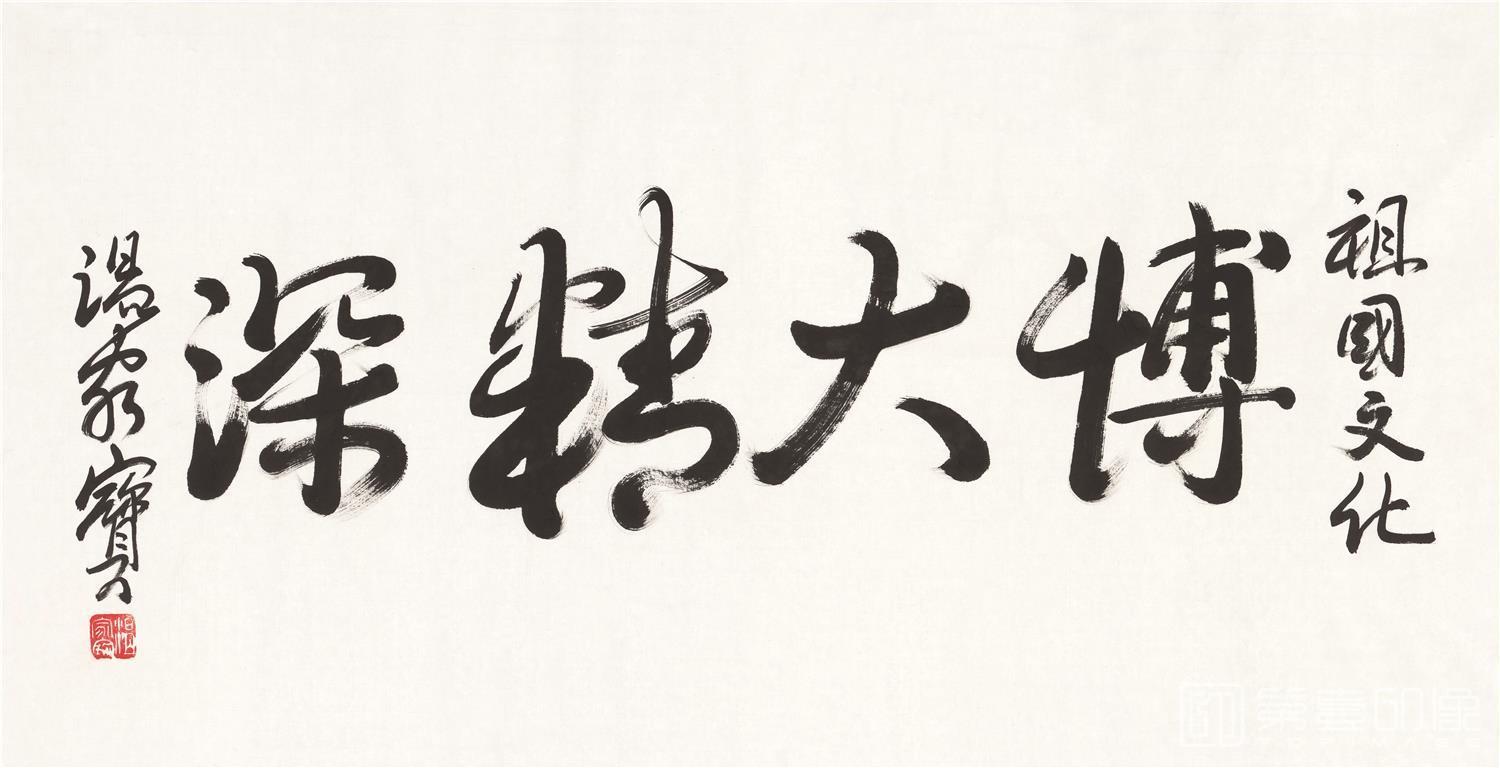 祖國文化
博大精深
温家寶
第壹印像
TOP IMAGE